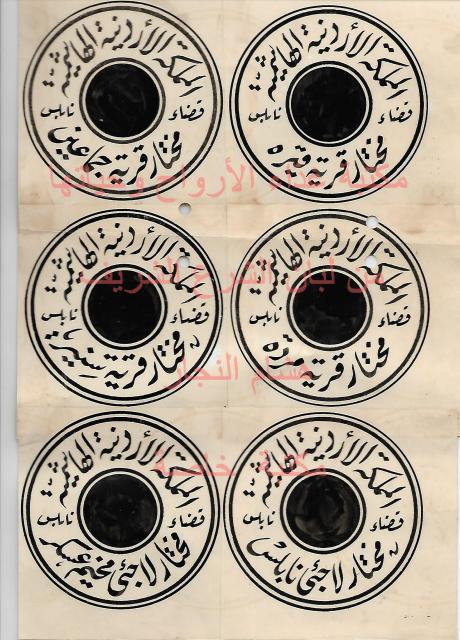 المملكة الأردنية الهاشمية
قضاء نابلس
مختار قرية قيره
المملكة الأردنية الهاشمية
قضاء نابلس
مختار قرية جماعين
مكتبة غذاء الأرواح وحياتها
المملكة الأردنية الهاشمية
قضاء نابلس
مختار قرية مردة
المملكة الأردنية الهاشمية
قضاء نابلس
مختار قرية
من لبان الشرع الشريف
هشام النجار
المملكة الأردنية الهاشمية
قضاء نابلس
مختار لاجئي نابلس
المملكة الأردنية الهاشمية
قضاء نابلس
مختار لاجئي مخيم عسكر
مكتبة خاصة